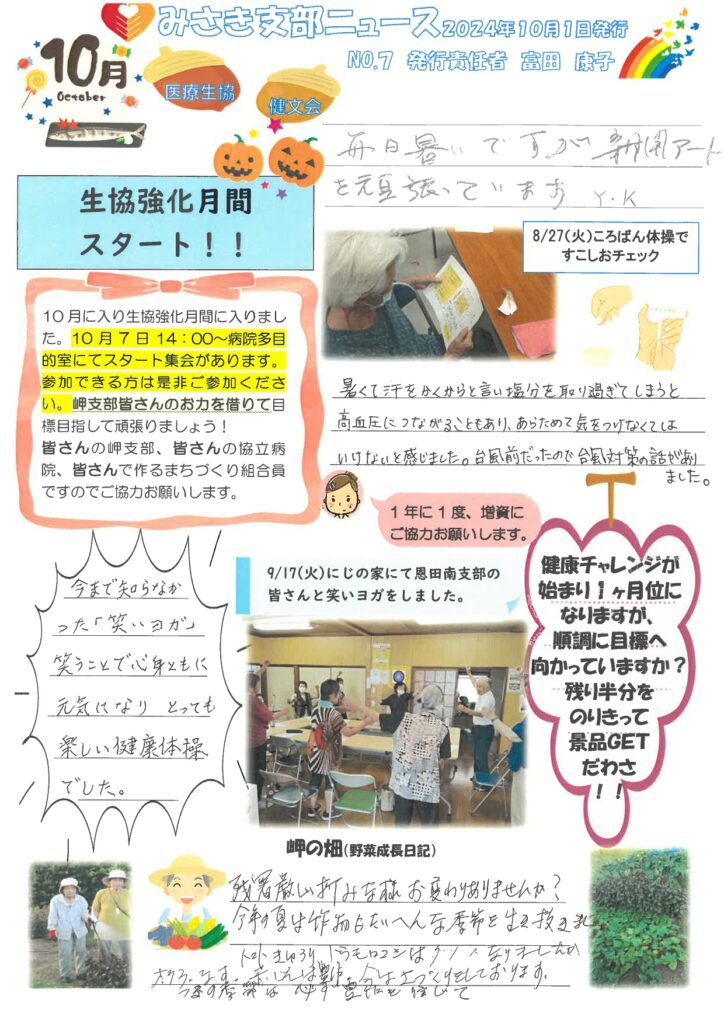 みさき支部ニュース 2024年10月1日発行
NO.7 発行責任者 富田 康子
10月
October
医療生協
健文会
毎日暑いですが新聞アート
を頑張っています Y.K
生協強化月間
スタート！！
8/27(火)ころばん体操で
すこしおチェック
10月に入り生協強化月間に入りまし
た。10月7日14：00～病院多目
的室にてスタート集会があります。
参加できる方は是非ご参加くださ
い。岬支部皆さんのお力を借りて目
標目指して頑張りましょう！
皆さんの岬支部、皆さんの協立病
院、皆さんで作るまちづくり組合員
ですのでご協力お願いします。
暑くて汗をかくからと言い塩分を取り過ぎてしまうと
高血圧につながることもあり、あらためて気をつけなくては
いけないと感じました。台風前だったので台風対策の話があり
ました。
1年に1度、増資に
ご協力お願いします。
今まで知らなか
った「笑いヨガ」
笑うことで心身ともに
元気になり とっても
楽しい健康体操
でした。
9/17(火)にじの家にて恩田南支部の
皆さんと笑いヨガをしました。
健康チャレンジが
始まり1ヶ月位に
なりますが、
順調に目標へ
向かっていますか？
残り半分を
のりきって
景品GET
だわさ
！！
岬の畑(野菜成長日記)
残暑厳しい折みな様お変わりありませんか？
今年の夏は作物もたいへんな季節を生き抜きました
トマト きゅうり トウモロコシは
オクラ、なす、